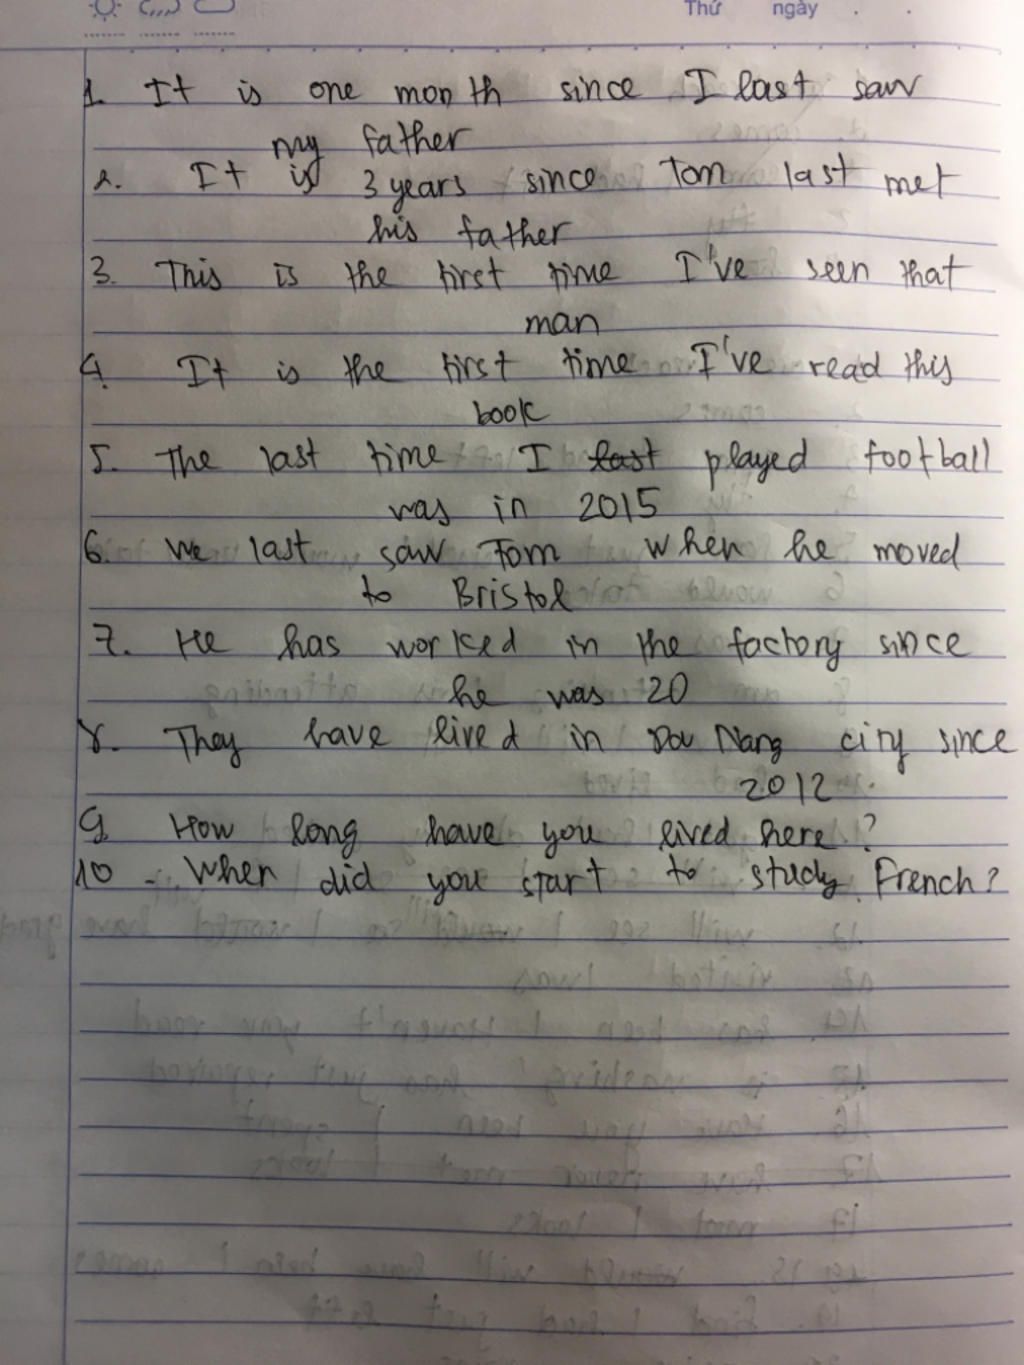 Thứ ngày . .
1. It is one month since I last saw
my father
2. It is 3 years since Tom last met
his father
3. This is the first time I've seen that
man
4. It is the first time I've read this
book
5. The last time I last played football
was in 2015
6. We last saw Tom when he moved
to Bristol
7. He has worked in the factory since
he was 20
8. They have lived in Da Nang city since
2012.
9 How long have you lived here?
10 - When did you start to study French?